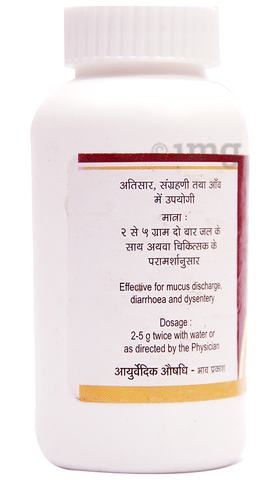 1mg
अतिसार, संग्रहणी तथा आँव
में उपयोगी
मात्रा :
२ से ५ ग्राम दो बार जल के
साथ अथवा चिकित्सक के
परामर्शानुसार
Effective for mucus discharge,
diarrhoea and dysentery
Dosage :
2-5 g twice with water or
as directed by the Physician
आयुर्वेदिक औषधि - भाव प्रकाश